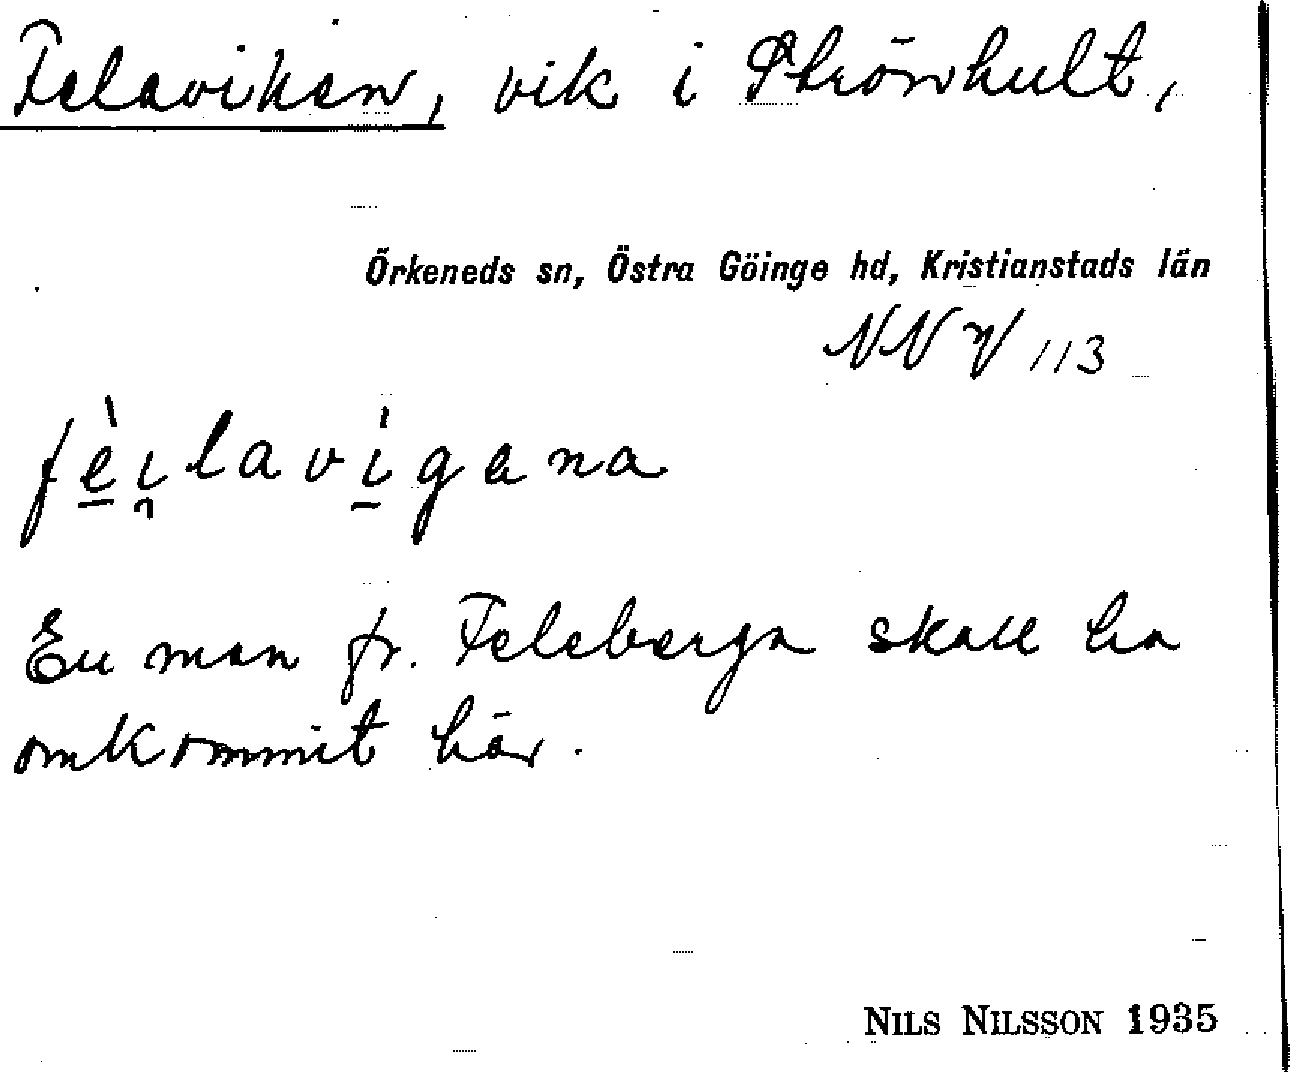 Felaviken, vik i Strönhult,
Örkeneds sn, Östra Göinge hd, Kristianstads län
NN V/113
fèi̯lavìgana
En man fr. Feleberga skall ha
omkommit här.
NILS NILSSON 1935